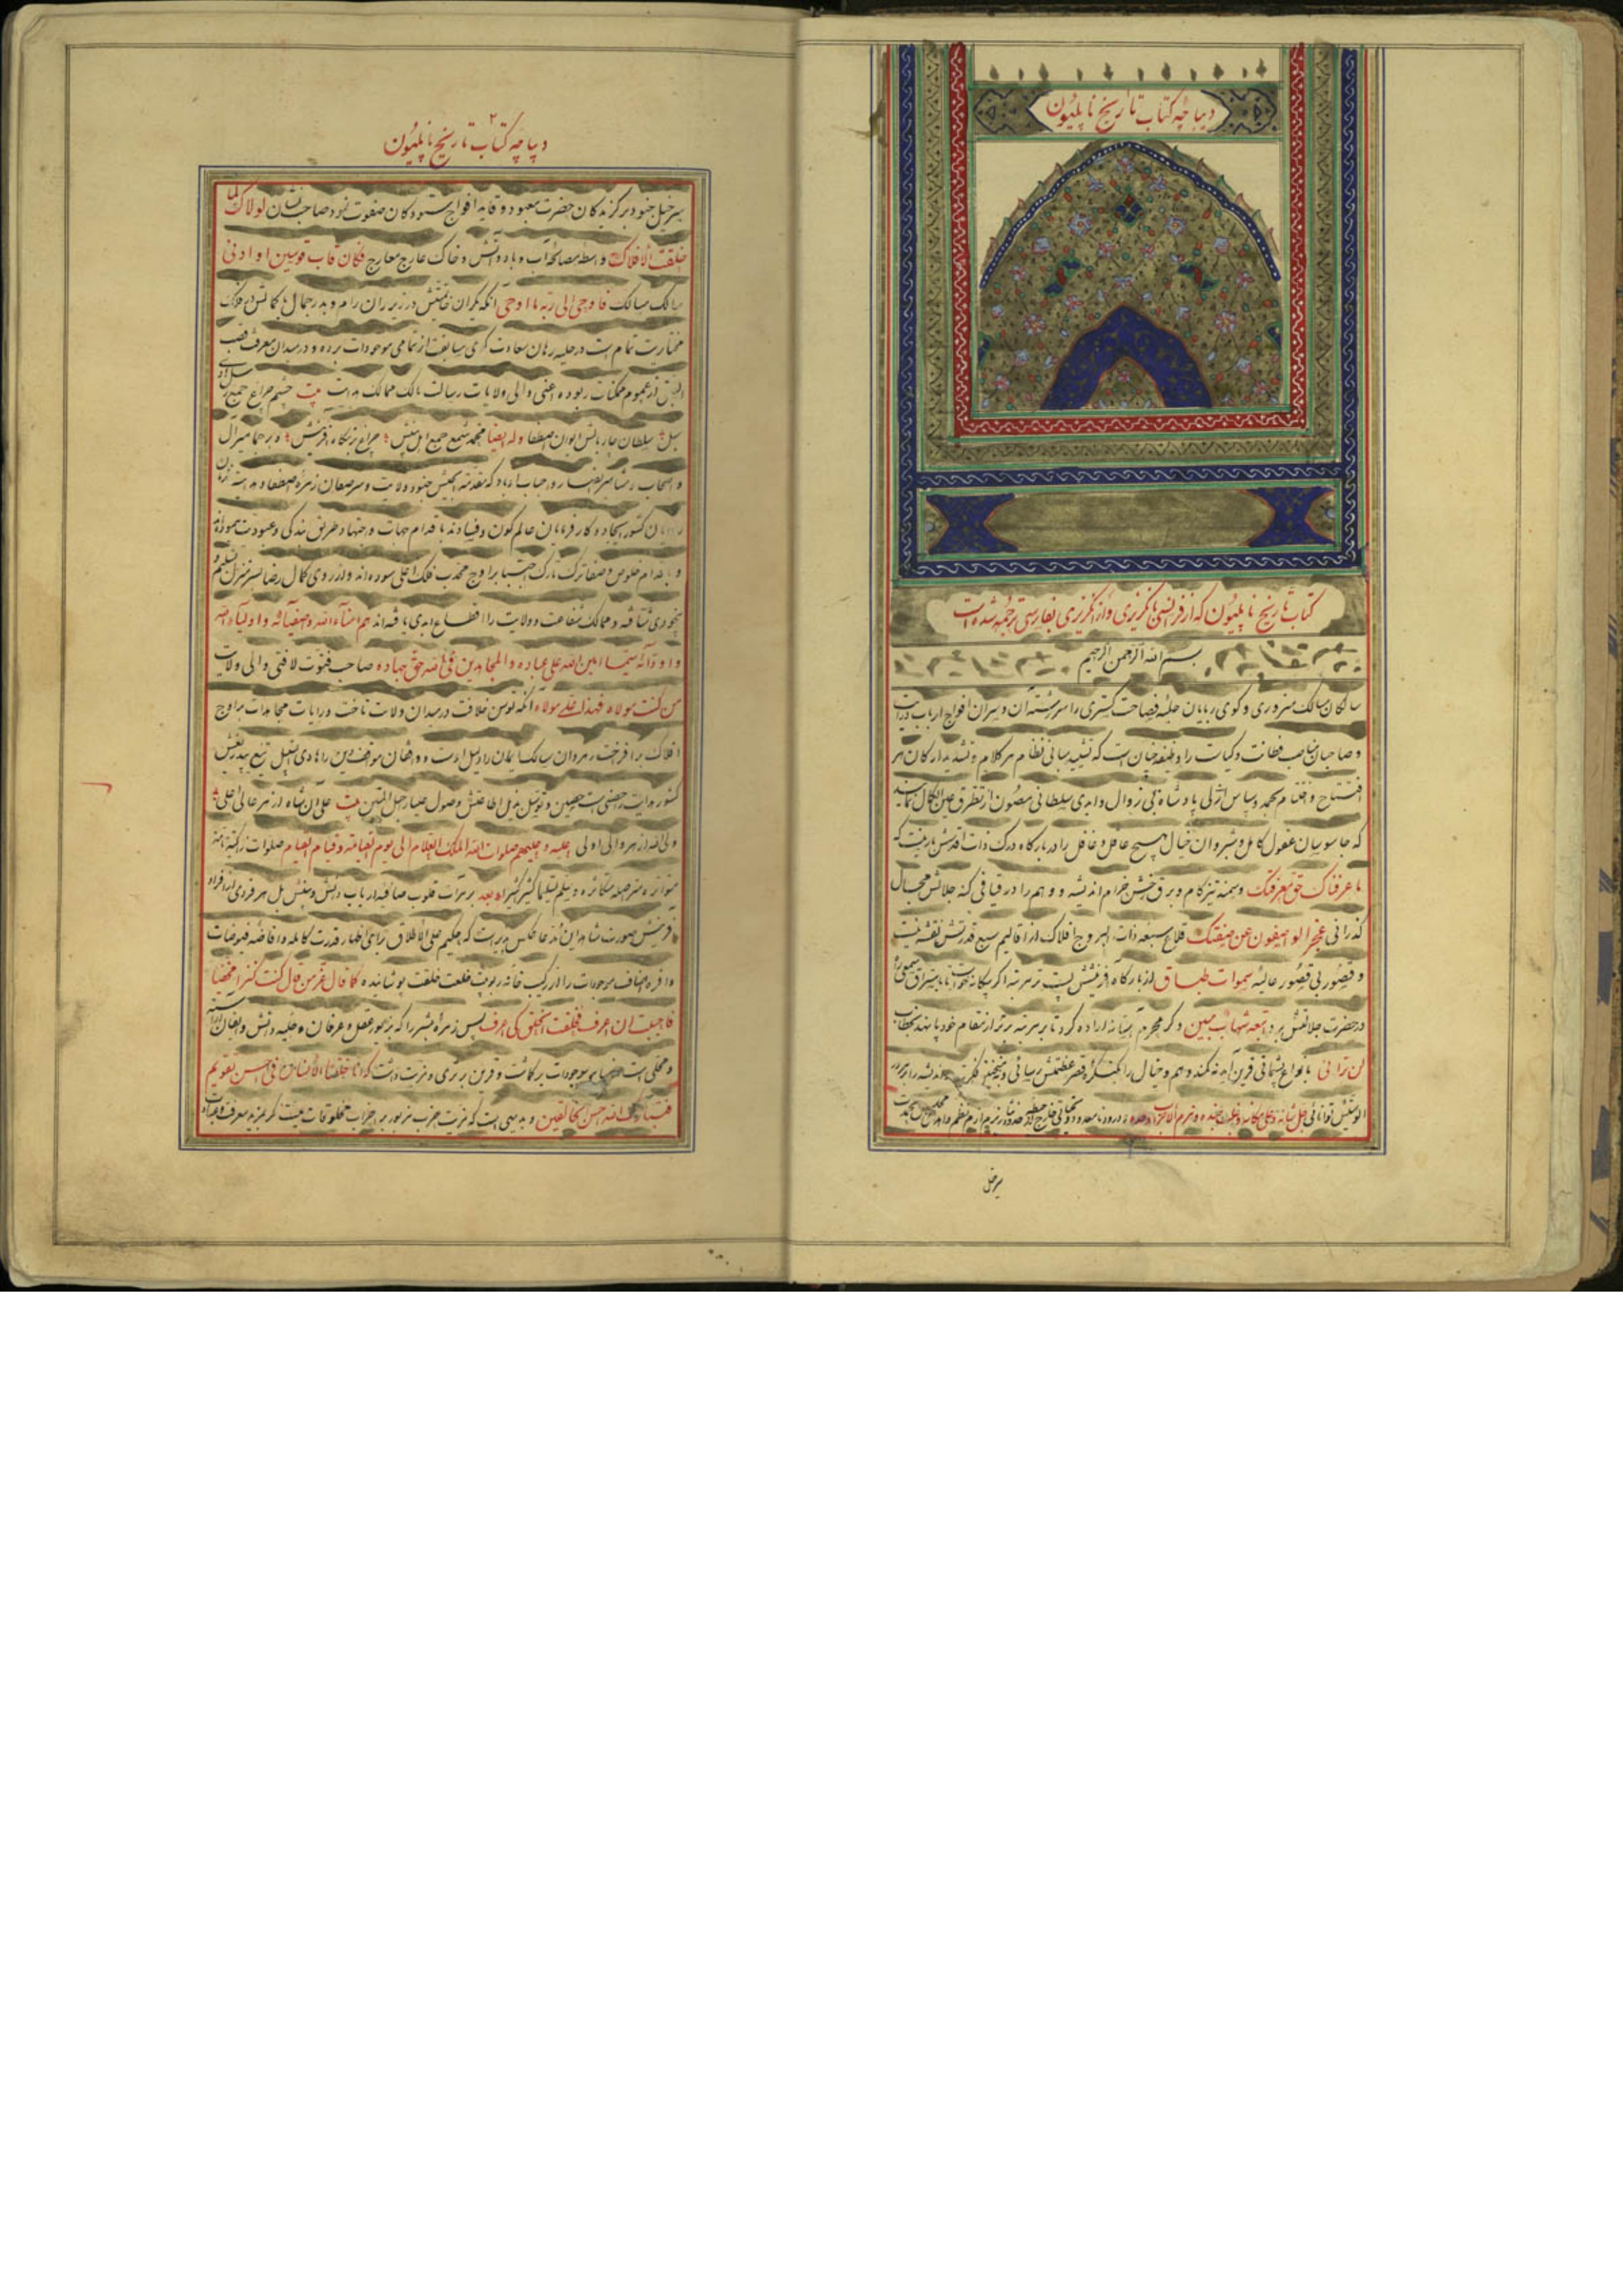 دیباچه کتاب تاریخ ناپلیون
کتاب تاریخ ناپلیون که از فرانسی بانگریزی و از انگریزی بفارسی ترجمه شده است
بسم الله الرحمن الرحیم
سالکان مسالک سروری و گوی ربایان حلبه فصاحت گستری را سررشته آن و سران افواج ارباب درایت
و صاحبان مناصب فطانت و کیاست را وظیفه چنان است که تشیید مبانی نظام هر کلام و تشدید ارکان هر
افتتاح و اختتام بحمد و سپاس ازلی پادشاه بی زوال و ابدی سلطانی مصون از تطرق عین الکمال نمایند
که جاسوسان عقول کامل و شبروان خیال هیچ عاقل و غافل را در بارگاه درک ذات اقدسش بار نیست که
ما عرفناک حق معرفتک و سمند تیزکام و برق رخش خرام اندیشه و وهم را در قیافی کنه جلالش مجال
گذر انی عجز الواصفون عن صفتک قلاع سبعه ذات البروج افلاک از اقالیم سبع قدرتش نقشه‌ئیست
و قصور بی قصور عالیه سموات طباق از بارگاه آفرینش پست تر مرتبه اگر بیگانه خواست تا باستراق سمعی
در حضرت جلالتش برد اتبعه شهاب مبین و گر محرم آشنا اراده کرد تا بر مرتبه برتر از مقام خود پا نهد بخطاب
لن ترانی بانواع پشیمانی قرین آمد نه کمند وهم و خیال را بکنگره قصر عظمتش رسائی و نه
جل شانه
سرخیل
۲
دیباچه کتاب تاریخ ناپلیون
سرخیل جنود برگزیدگان حضرت معبود و قاید افواج ستودگان صفوت نمود صاحب نشان لولاک لما
خلقت الافلاک واسطه مصالحه آب و باد و آتش و خاک عارج معارج فکان قاب قوسین او ادنی
سالک مسالک فاوحی الی ربه ما اوحی آنکه یکران در زیر ران رام و بدر جمال با کمالش بر فلک
مختاریت تمام است در حلبه رهان سعادت گوی سابقت از تمامی موجودات برده و در میدان معرفت قصب
از عموم ممکنات ربوده اعنی والی ولایات رسالت مالک ممالک هدایت بیت چشم و چراغ جمیع
سلطان چاربالش ایوان اصطفا وله ایضا محمد شمع جمع اهل بینش چراغ بزمگاه آفرینش و بر جماهیر آل
و اصحاب و احباب او باد که مقدمة الجیش جنود ولایت و سرصفان زمره اصطفا و هدایتند
کشور ایجاد و کارفرمایان عالم کون و فساد بقدام جهات و اجتهاد طریق بندگی و عبودیت پیموده‌اند
و باقدام خلوص و صفا تارک اجتبا بر اوج محدب فلک اعلی سوده‌اند و از روی کمال رضا بسر منزل تسلیم و
شتافته و ممالک شفاعت و ولایت را اقطاع ابدی یافته‌اند هم امناء الله و اصفیائه و اولیاء الله
و اودائه سیما امین الله علی عباده والمجاهدین فی الله حق جهاده صاحب فتوت لافتی والی ولایت
من کنت مولاه فهذا علی مولاه آنکه توسن خلافت در میدان ولایت تاخت و رایات مجاهدات بر اوج
افلاک برافراخت رهروان مسالک ایمان را دلیل است و واقفان مواقف دین را هادی سبیل تیغ بیدریغش
کشور هدایت را حصنی است حصین و توسل بذیل اطاعتش وصول بحبل المتین بیت علی آن شاه از هر عالی اعلی
ولی الله از هر والی اولی علیه و علیهم صلوات الله الملک العلام الی یوم القیامة و قیام القیام صلوات زاکیة نامیة
متواتره متواصله متکاثره و سلم تسلیما کثیرا کثیرا اما بعد بر مرآت قلوب صافیه ارباب دانش و بینش بل هر فردی از افراد
آفرینش صورت شاهد این مدعا عکس پذیر است که حکیم علی الاطلاق برای اظهار قدرت کامله و افاضه فیوضات
وافره اصناف موجودات را از ترکیب خانه ربوبیت خلعت خلقت پوشانیده کما قال عز من قائل کنت کنزا مخفیا
فاحببت ان اعرف فخلقت الخلق لکی اعرف پس زمره بشر را که بزیور عقل و عرفان و حلیه دانش و ایقان آراسته
و محلی است بر سایر موجودات برگماشت و قرین برتری و مزیت داشت که انا خلقنا الانسان فی احسن تقویم
فتبارک الله احسن الخالقین و بدیهی است که مزیت حزب مزبور بر احزاب مخلوقات نیست مگر بمزید معرفت و عبادت